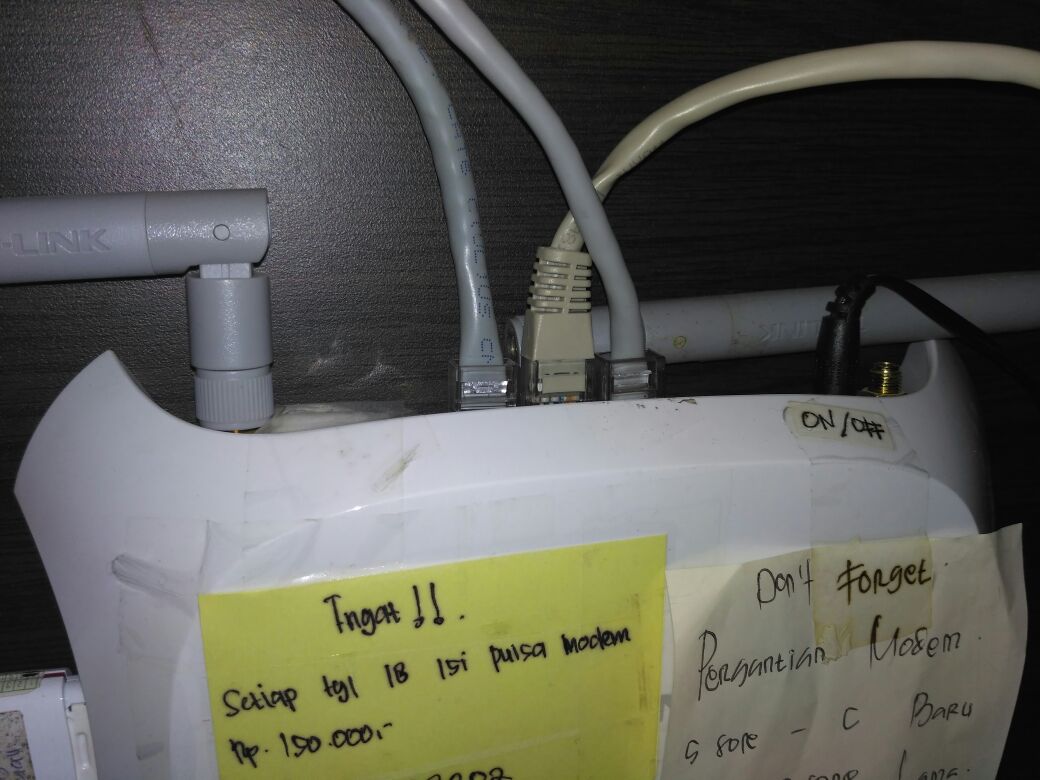 -LINK
LINK
ON/OFF
Ingat!!.
Setiap tgl 18 isi pulsa modem
Rp. 150.000,-
Don't Forget
Pergantian Modem
5 sore - C Baru